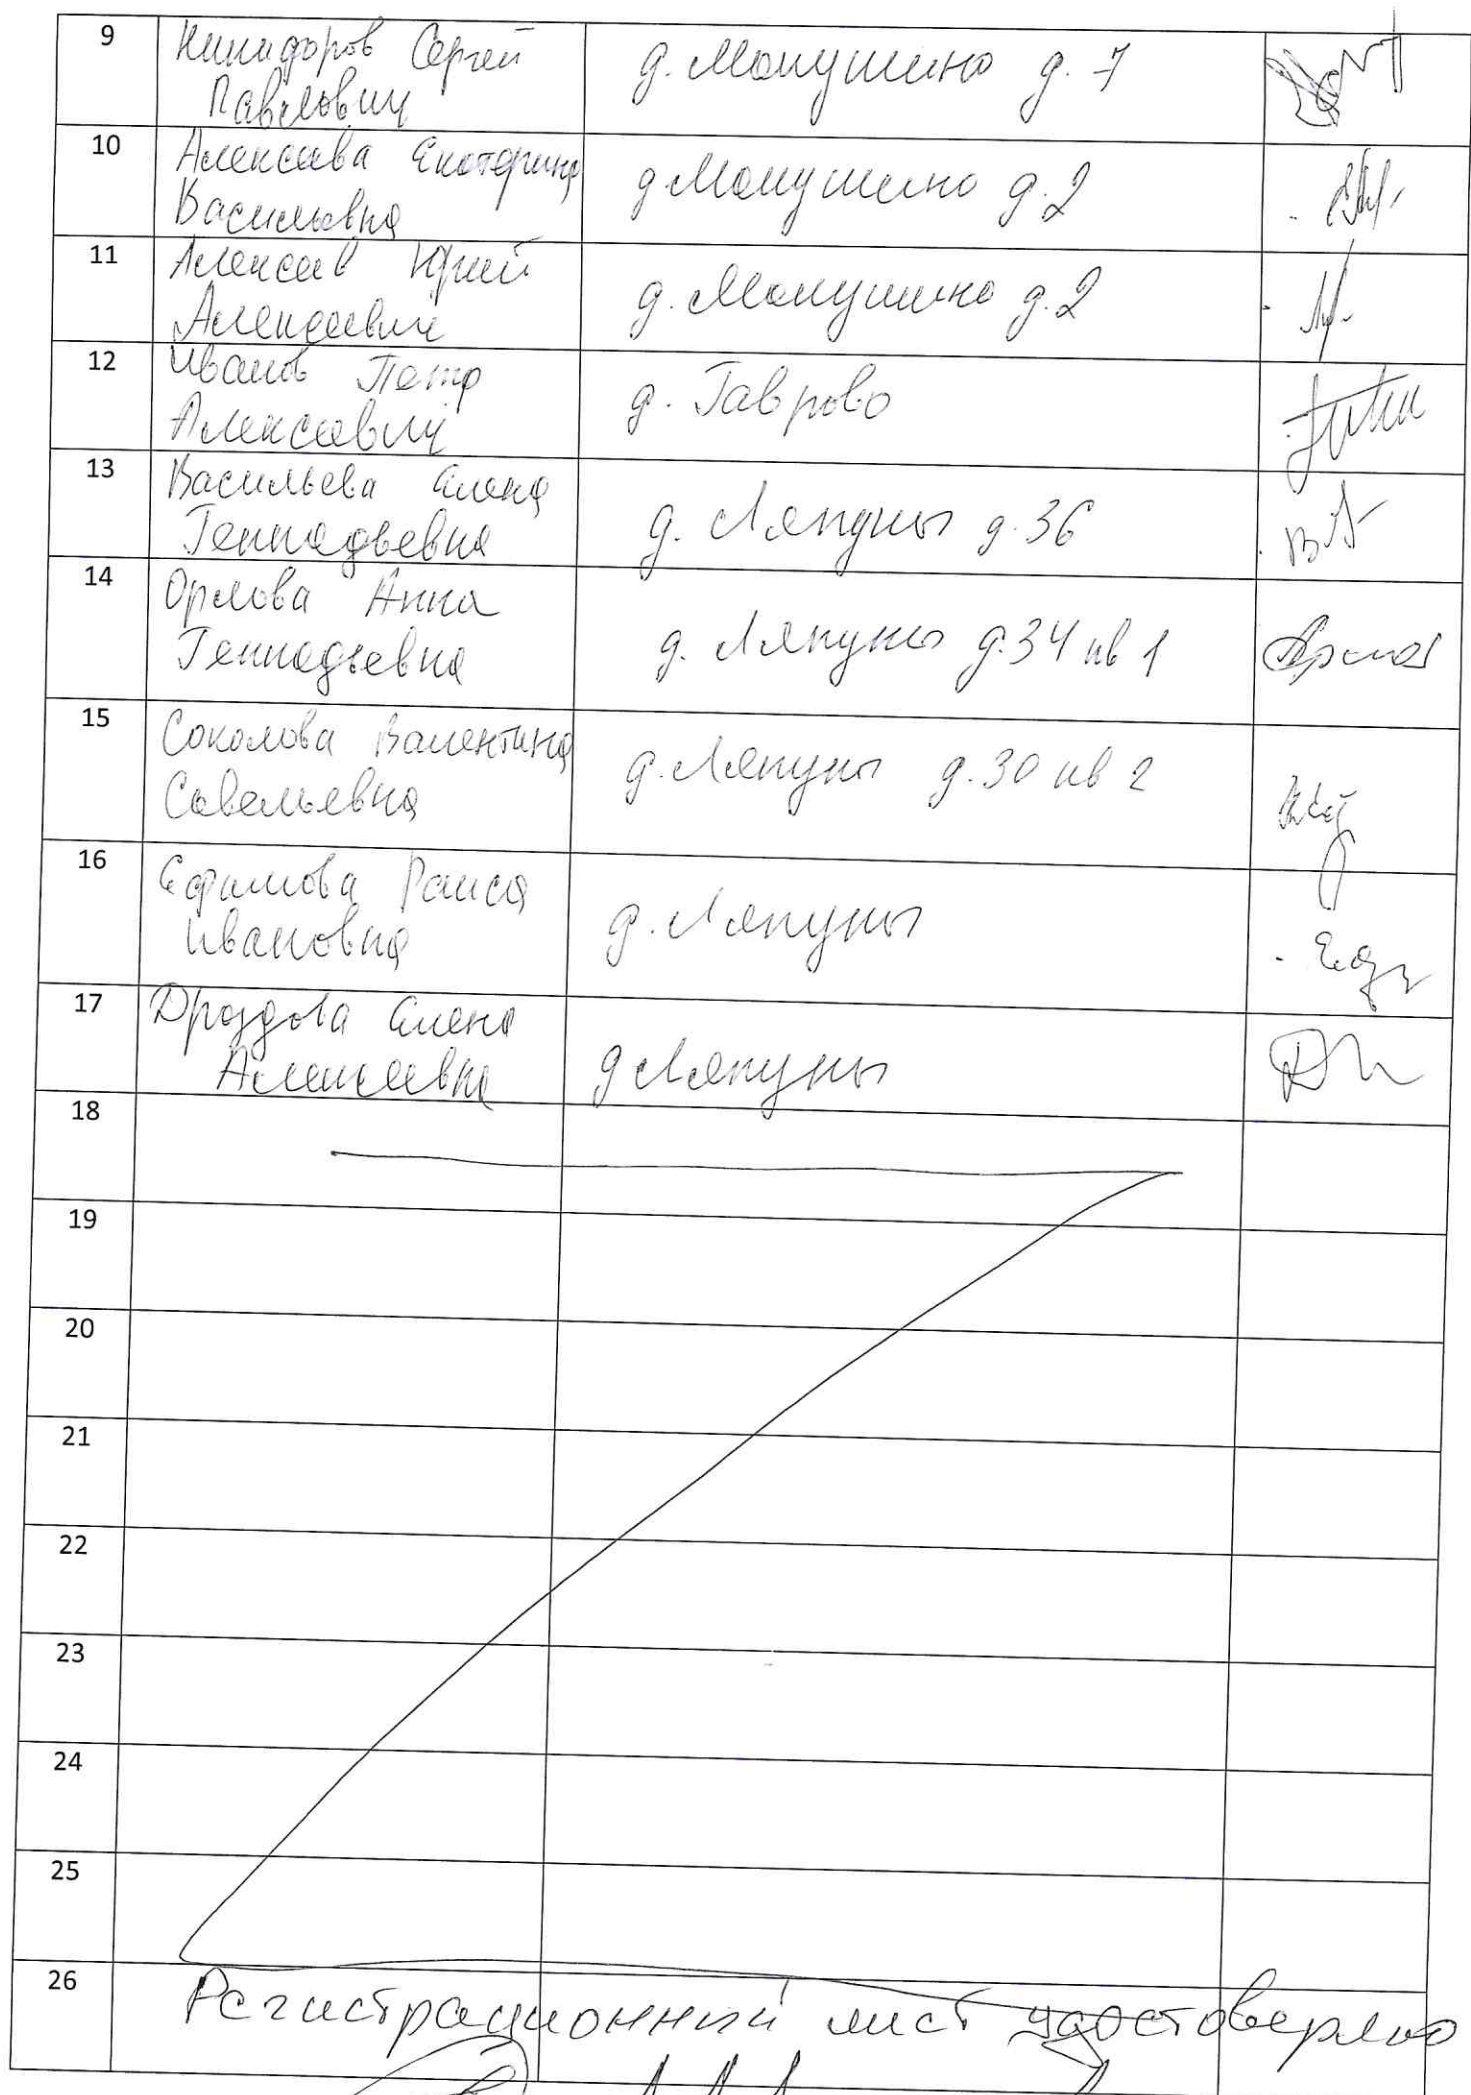 9
Никифоров Сергей
Павлович
д. Мокушино д. 7
10
Алексеева Екатерина
Васильевна
д Мокушино д. 2
11
Алексеев Юрий
Алексеевич
д. Мокушино д. 2
12
Иванов Петр
Алексеевич
д. Гаврово
13
Васильева Елена
Геннадьевна
д. Ляпуны д. 36
14
Орлова Анна
Геннадьевна
д. Ляпуны д. 34 кв 1
15
Соколова Валентина
Савельевна
д. Ляпуны д. 30 кв 2
16
Ефимова Раиса
Ивановна
д. Ляпуны
17
Дроздова Елена
Алексеевна
д Ляпуны
18
19
20
21
22
23
24
25
26
Регистрационный лист удостоверяю